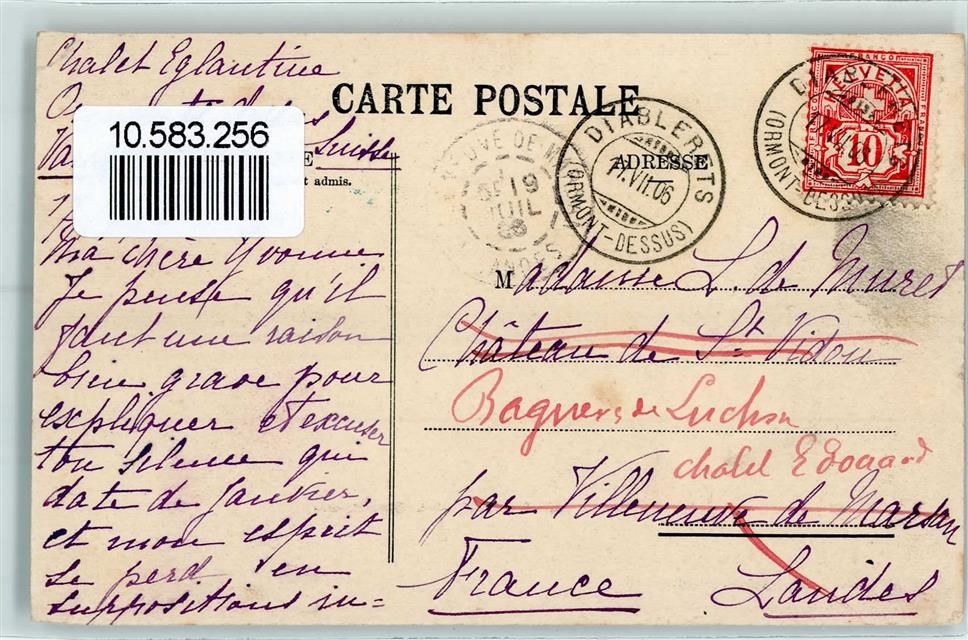 Chalet Eglantine
CARTE POSTALE
10.583.256
Suisse
ADRESSE
t admis.
Ma chère Yvonne
Je pense qu'il
faut une raison
bien grave pour
expliquer et excuser
ton silence qui
date de Janvier,
et mon esprit
se perd en
suppositions in=
DIABLERETS
(ORMONT-DESSUS)
19
JUIL
LANDES
FRANCO
HELVETIA
10
(ORMONT-DESSUS)
Madame L. de Muret
Château de St Vidou
Bagneres de Luchon
chalet Edouard
par Villeneuve de Marsan
France Landes